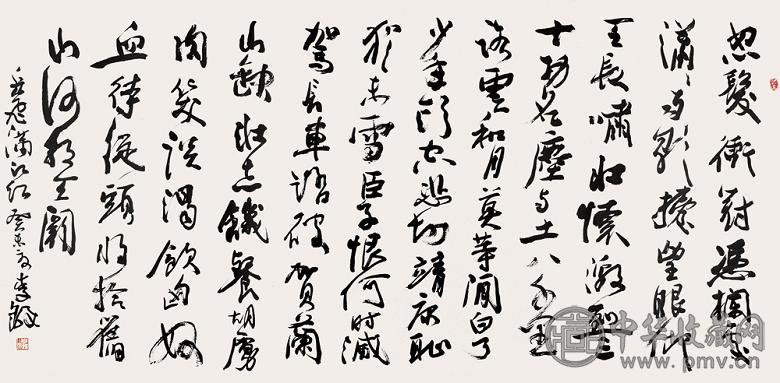 怒髮衝冠憑欄處
瀟瀟雨歇擡望眼仰
天長嘯壯懷激烈三
十功名塵与土八千里
路雲和月莫等閒白了
少年頭空悲切靖康恥
猶未雪臣子恨何時滅
駕長車踏破賀蘭
山缺壯志饑餐胡虜
肉笑談渴飲匈奴
血待從頭收拾舊
山河朝天闕
岳飛滿江红 癸未夏 李鐸
中华收藏网
www.pmv.cn